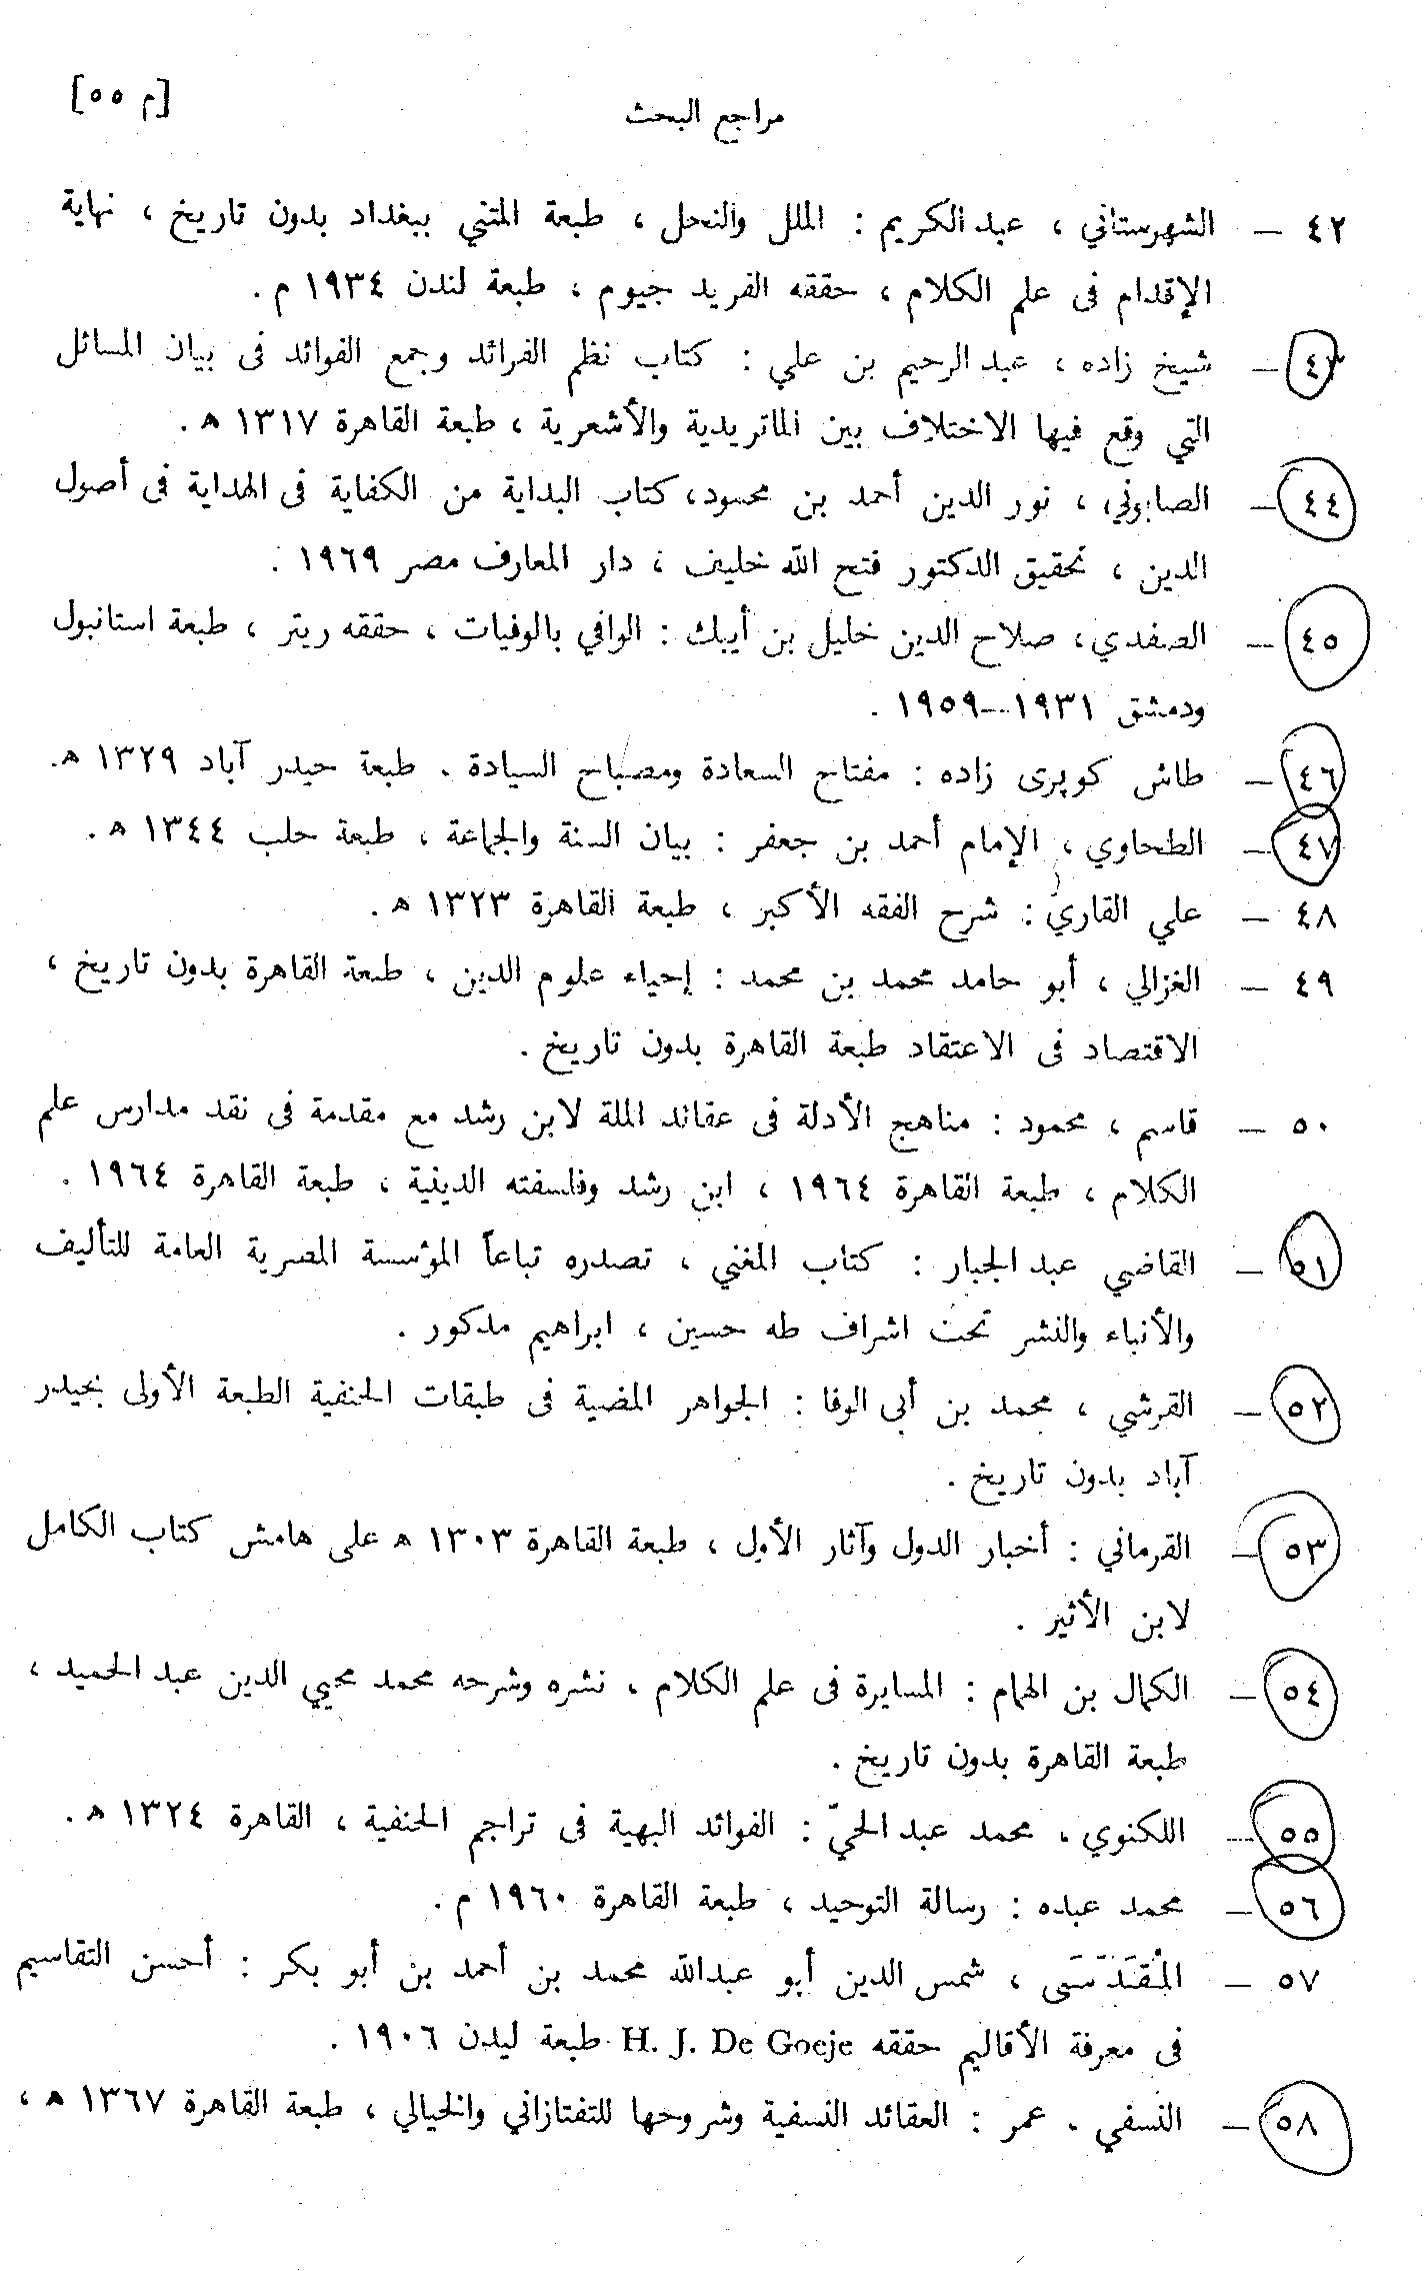 [م ٥٥]
مراجع البحث
٤٢ — الشهرستاني ، عبد الكريم : الملل والنحل ، طبعة المتني ببغداد بدون تاريخ ، نهاية
الإقدام فى علم الكلام ، حققه الفريد جيوم ، طبعة لندن ١٩٣٤ م .
٤٣ — شيخ زاده ، عبد الرحيم بن علي : كتاب نظم الفرائد وجمع الفوائد فى بيان المسائل
التي وقع فيها الاختلاف بين الماتريدية والأشعرية ، طبعة القاهرة ١٣١٧ ه .
٤٤ — الصابوني ، نور الدين أحمد بن محمود، كتاب البداية من الكفاية فى الهداية فى أصول
الدين ، تحقيق الدكتور فتح الله خليف ، دار المعارف مصر ١٩٦٩ .
٤٥ — الصفدي ، صلاح الدين خليل بن أيبك : الوافي بالوفيات ، حققه ريتر ، طبعة استانبول
ودمشق ١٩٣١—١٩٥٩ .
٤٦ — طاش كوپرى زاده : مفتاح السعادة ومصباح السيادة . طبعة حيدر آباد ١٣٢٩ ه .
٤٧ — الطحاوي ، الإمام أحمد بن جعفر : بيان السنة والجماعة ، طبعة حلب ١٣٤٤ ه .
٤٨ — علي القاريّ : شرح الفقه الأكبر ، طبعة القاهرة ١٣٢٣ ه .
٤٩ — الغزالي ، أبو حامد محمد بن محمد : إحياء علوم الدين ، طبعة القاهرة بدون تاريخ ،
الاقتصاد فى الاعتقاد طبعة القاهرة بدون تاريخ .
٥٠ — قاسم ، محمود : مناهج الأدلة فى عقائد الملة لابن رشد مع مقدمة فى نقد مدارس علم
الكلام ، طبعة القاهرة ١٩٦٤ ، ابن رشد وفلسفته الدينية ، طبعة القاهرة ١٩٦٤ .
٥١ — القاضي عبد الجبار : كتاب المغني ، تصدره تباعاً المؤسسة المصرية العامة للتأليف
والأنباء والنشر تحت اشراف طه حسين ، ابراهيم مدكور .
٥٢ — القرشي ، محمد بن أبى الوفا : الجواهر المضية فى طبقات الحنفية الطبعة الأولى بحيدر
آباد بدون تاريخ .
٥٣ — القرماني : أخبار الدول وآثار الأول ، طبعة القاهرة ١٣٠٣ ه على هامش كتاب الكامل
لابن الأثير .
٥٤ — الكمال بن الهمام : المسايرة فى علم الكلام ، نشره وشرحه محمد محيي الدين عبد الحميد ،
طبعة القاهرة بدون تاريخ .
٥٥ — اللكنوي ، محمد عبد الحيّ : الفوائد البهية فى تراجم الحنفية ، القاهرة ١٣٢٤ ه .
٥٦ — محمد عبده : رسالة التوحيد ، طبعة القاهرة ١٩٦٠ م .
٥٧ — المُقَدَّسَى ، شمس الدين أبو عبدالله محمد بن أحمد بن أبو بكر : أحسن التقاسيم
فى معرفة الأقاليم حققه H. J. De Goeje طبعة ليدن ١٩٠٦ .
٥٨ — النسفي . عمر : العقائد النسفية وشروحها للتفتازاني والخيالي ، طبعة القاهرة ١٣٦٧ ه ،